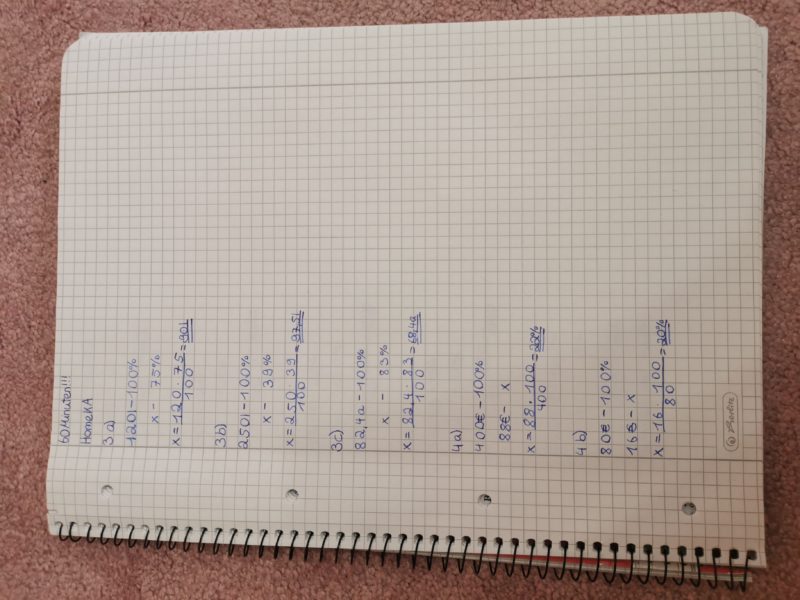 60 Minuten!!!
HomeKA
3a)
120l-100%
x - 75%
x = 120 · 75 / 100 = 90l
3b)
250l-100%
x - 39%
x = 250 · 39 / 100 = 97,5l
3c)
82,4a-100%
x - 83%
x = 82,4 · 83 / 100 = 68,4a
4a)
400€-100%
88€- x
x = 88 · 100 / 400 = 22%
4b)
80€-100%
16€-x
x = 16 · 100 / 80 = 20%